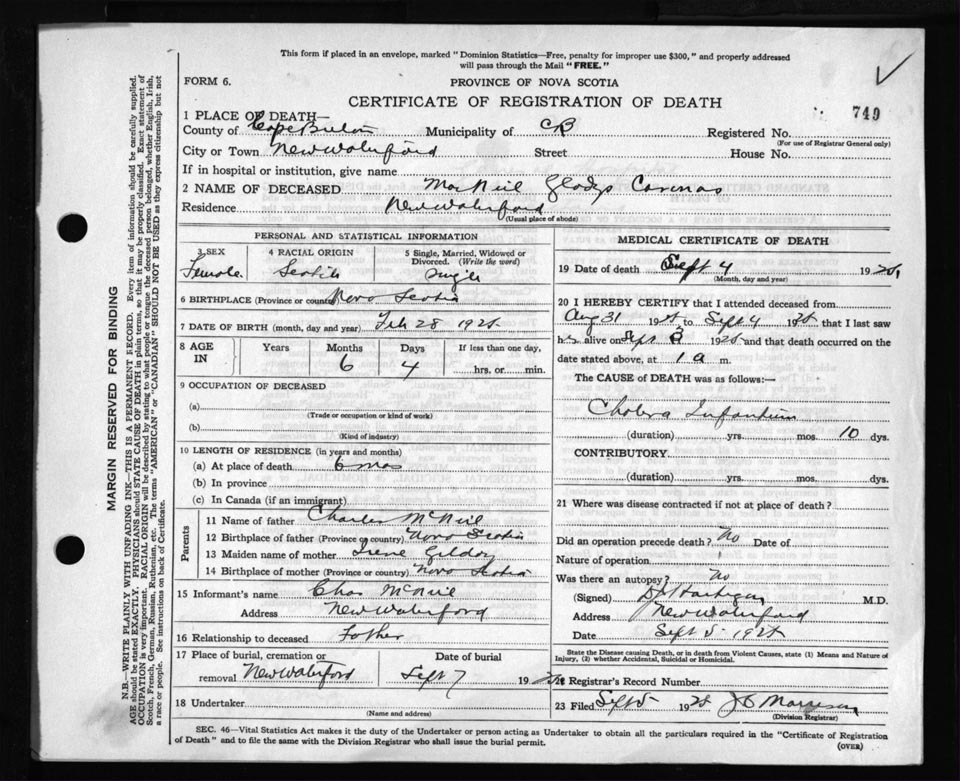 This form if placed in an envelope, marked "Dominion Statistics—Free, penalty for improper use $300," and properly addressed
will pass through the Mail "FREE."
FORM 6.
PROVINCE OF NOVA SCOTIA
CERTIFICATE OF REGISTRATION OF DEATH
749
1 PLACE OF DEATH—
County of Cape Breton Municipality of CB Registered No.
(For use of Registrar General only)
City or Town New Waterford Street House No.
If in hospital or institution, give name
2 NAME OF DECEASED MacNeil Gladys
Residence New Waterford
(Usual place of abode)
PERSONAL AND STATISTICAL INFORMATION
3 SEX 4 RACIAL ORIGIN 5 Single, Married, Widowed or Divorced. (Write the word)
Female Scotch Single
6 BIRTHPLACE (Province or country) Nova Scotia
7 DATE OF BIRTH (month, day and year) Feb 28 1928
8 AGE IN Years Months Days If less than one day,
6 4 hrs. or min.
9 OCCUPATION OF DECEASED
(a)
(Trade or occupation or kind of work)
(b)
(Kind of industry)
10 LENGTH OF RESIDENCE (in years and months)
(a) At place of death 6 mos
(b) In province
(c) In Canada (if an immigrant)
Parents
11 Name of father Charles McNeil
12 Birthplace of father (Province or country) Nova Scotia
13 Maiden name of mother Irene
14 Birthplace of mother (Province or country) Nova Scotia
15 Informant's name Chas McNeil
Address New Waterford
16 Relationship to deceased Father
17 Place of burial, cremation or removal New Waterford Date of burial Sept 7 1928
18 Undertaker
(Name and address)
MEDICAL CERTIFICATE OF DEATH
19 Date of death Sept 4 1928
(Month, day and year)
20 I HEREBY CERTIFY that I attended deceased from
Aug 31 1928 to Sept 4 1928 that I last saw
h alive on Sept 3 1928 and that death occurred on the
date stated above, at 1 a m.
The CAUSE of DEATH was as follows:—
Cholera Infantum
(duration) yrs. mos. 10 dys.
CONTRIBUTORY
(duration) yrs. mos. dys.
21 Where was disease contracted if not at place of death?
Did an operation precede death? No Date of
Nature of operation
Was there an autopsy? No
(Signed) M.D.
Address New Waterford
Date Sept 5 1928
State the Disease causing Death, or in death from Violent Causes, state (1) Means and Nature of
Injury, (2) whether Accidental, Suicidal or Homicidal.
22 Registrar's Record Number
23 Filed Sept 5 1928
(Division Registrar)
SEC. 46—Vital Statistics Act makes it the duty of the Undertaker or person acting as Undertaker to obtain all the particulars required in the "Certificate of Registration
of Death" and to file the same with the Division Registrar who shall issue the burial permit.
(OVER)
MARGIN RESERVED FOR BINDING
N.B.—WRITE PLAINLY WITH UNFADING INK—THIS IS A PERMANENT RECORD. Every item of information should be carefully supplied.
AGE should be stated EXACTLY. PHYSICIANS should STATE CAUSE OF DEATH in plain terms, so that it may be properly classified. Exact statement of
OCCUPATION is very important. RACIAL ORIGIN will be described by stating to what people or tongue the deceased person belonged, whether English, Irish,
Scotch, French, German, Russian, Ruthenian, etc. The terms "AMERICAN" or "CANADIAN" SHOULD NOT BE USED as they express citizenship but not
a race or people. See instructions on back of Certificate.